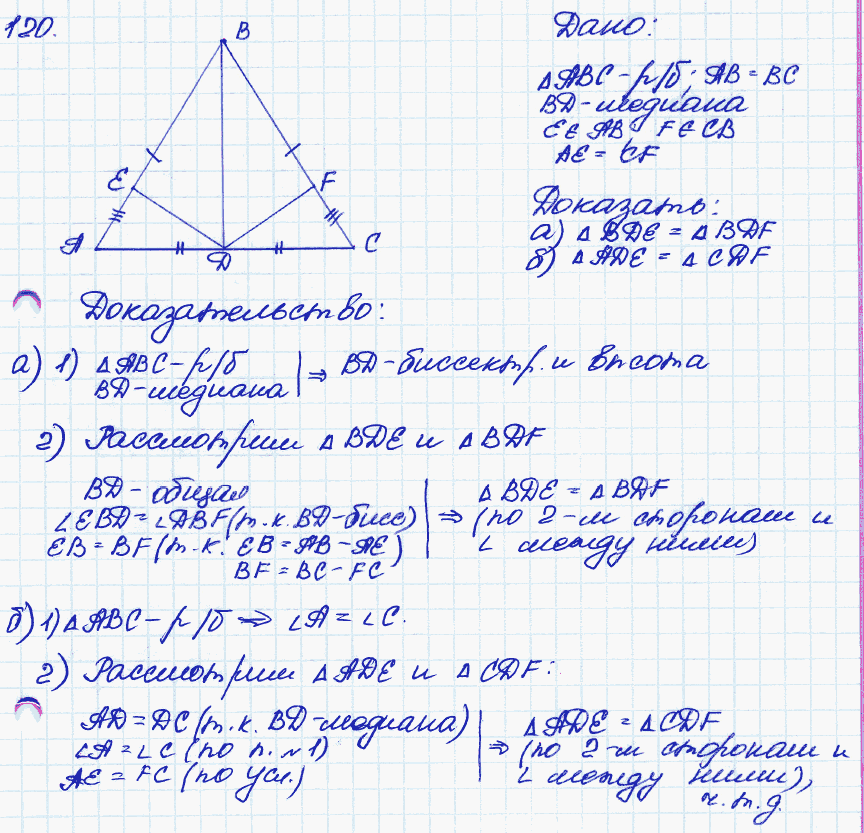 120.
B
E
F
A
D
C
Дано:
△ABC - р/б; AB = BC
BD - медиана
E ∈ AB; F ∈ CB
AE = CF
Доказать:
а) △BDE = △BDF
б) △ADE = △CDF
Доказательство:
а) 1) △ABC - р/б
BD - медиана
⇒ BD - биссектр. и высота
2) Рассмотрим △BDE и △BDF
BD - общая
∠EBD = ∠DBF (т.к. BD - бисс)
EB = BF (т.к. EB = AB - AE)
BF = BC - FC
⇒ △BDE = △BDF
(по 2-м сторонам и
∠ между ними)
б) 1) △ABC - р/б ⇒ ∠A = ∠C.
2) Рассмотрим △ADE и △CDF:
AD = DC (т.к. BD - медиана)
∠A = ∠C (по п. №1)
AE = FC (по усл.)
⇒ △ADE = △CDF
(по 2-м сторонам и
∠ между ними),
ч.т.д.